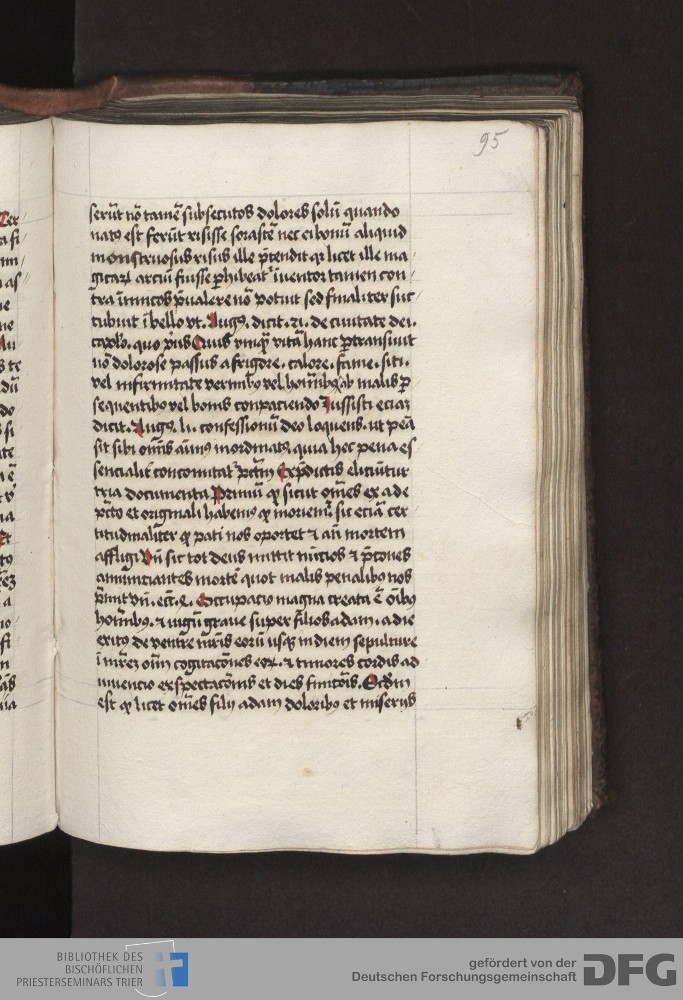 95
serūt nō tamē subsecutos dolores solū quando
natꝰ est ferūt risisse sorastē nec ei bonū aliquid
monstruosus risus ille p̄tendit qꝛ licet ille ma
gicaꝝ arciū fuisse ꝑhibeat᷑ īuentor tamen con
tra īimicos p̄ualere nō potuit sed finaliter suc
cubuit ī bello vt. Augꝯ. dicit. 21. de ciuitate dei.
caplo. quo pͥus Quis vmqꝫ vitā hanc ꝑtransiuit
nō dolorose passus a frigore. calore. fame. siti.
vel infirmitate vermibꝰ vel hoīnibꝰ ab malis ꝑ
sequentibꝰ vel bonis conpaciendo Iussisti eciaꝫ
dicit. Augꝯ. li. confessionū deo loquens. ut pena
sit sibi om̄is aīmus inordinatꝰ. quia hec pena es
sencialit̄ concomitat᷑ pctm̄ Ex p̄dictis eliciūtur
tria documenta Primū ꝙ sicut om̄es ex ade
pctō et originali habemꝰ ꝙ moriemur sic eciā cer
titudinaliter ꝙ pati nos oportet ⁊ an̄ mortem
affligi Vn̄ sic tot deus mittit nūcios ⁊ p̄cones
annunciantes mortē quot malis penalibꝰ nos
p̄mit vn̄. ecc̄. Occupacio magna creata ē oībꝰ
hoīnibꝰ. ⁊ iugū graue super filios adam. a die
exitꝰ de ventre mr̄is eorū usqꝫ in diem sepulture
ī mr̄eꝫ oīm cogitacōnes eoꝝ. ⁊ timores cordis ad
inuencio exspectacōnis et dies finitōis. Scdm̄
est ꝙ licet om̄es filij adam doloribꝰ et miserijs
BIBLIOTHEK DES
BISCHÖFLICHEN
PRIESTERSEMINARS TRIER
gefördert von der
Deutschen Forschungsgemeinschaft
DFG